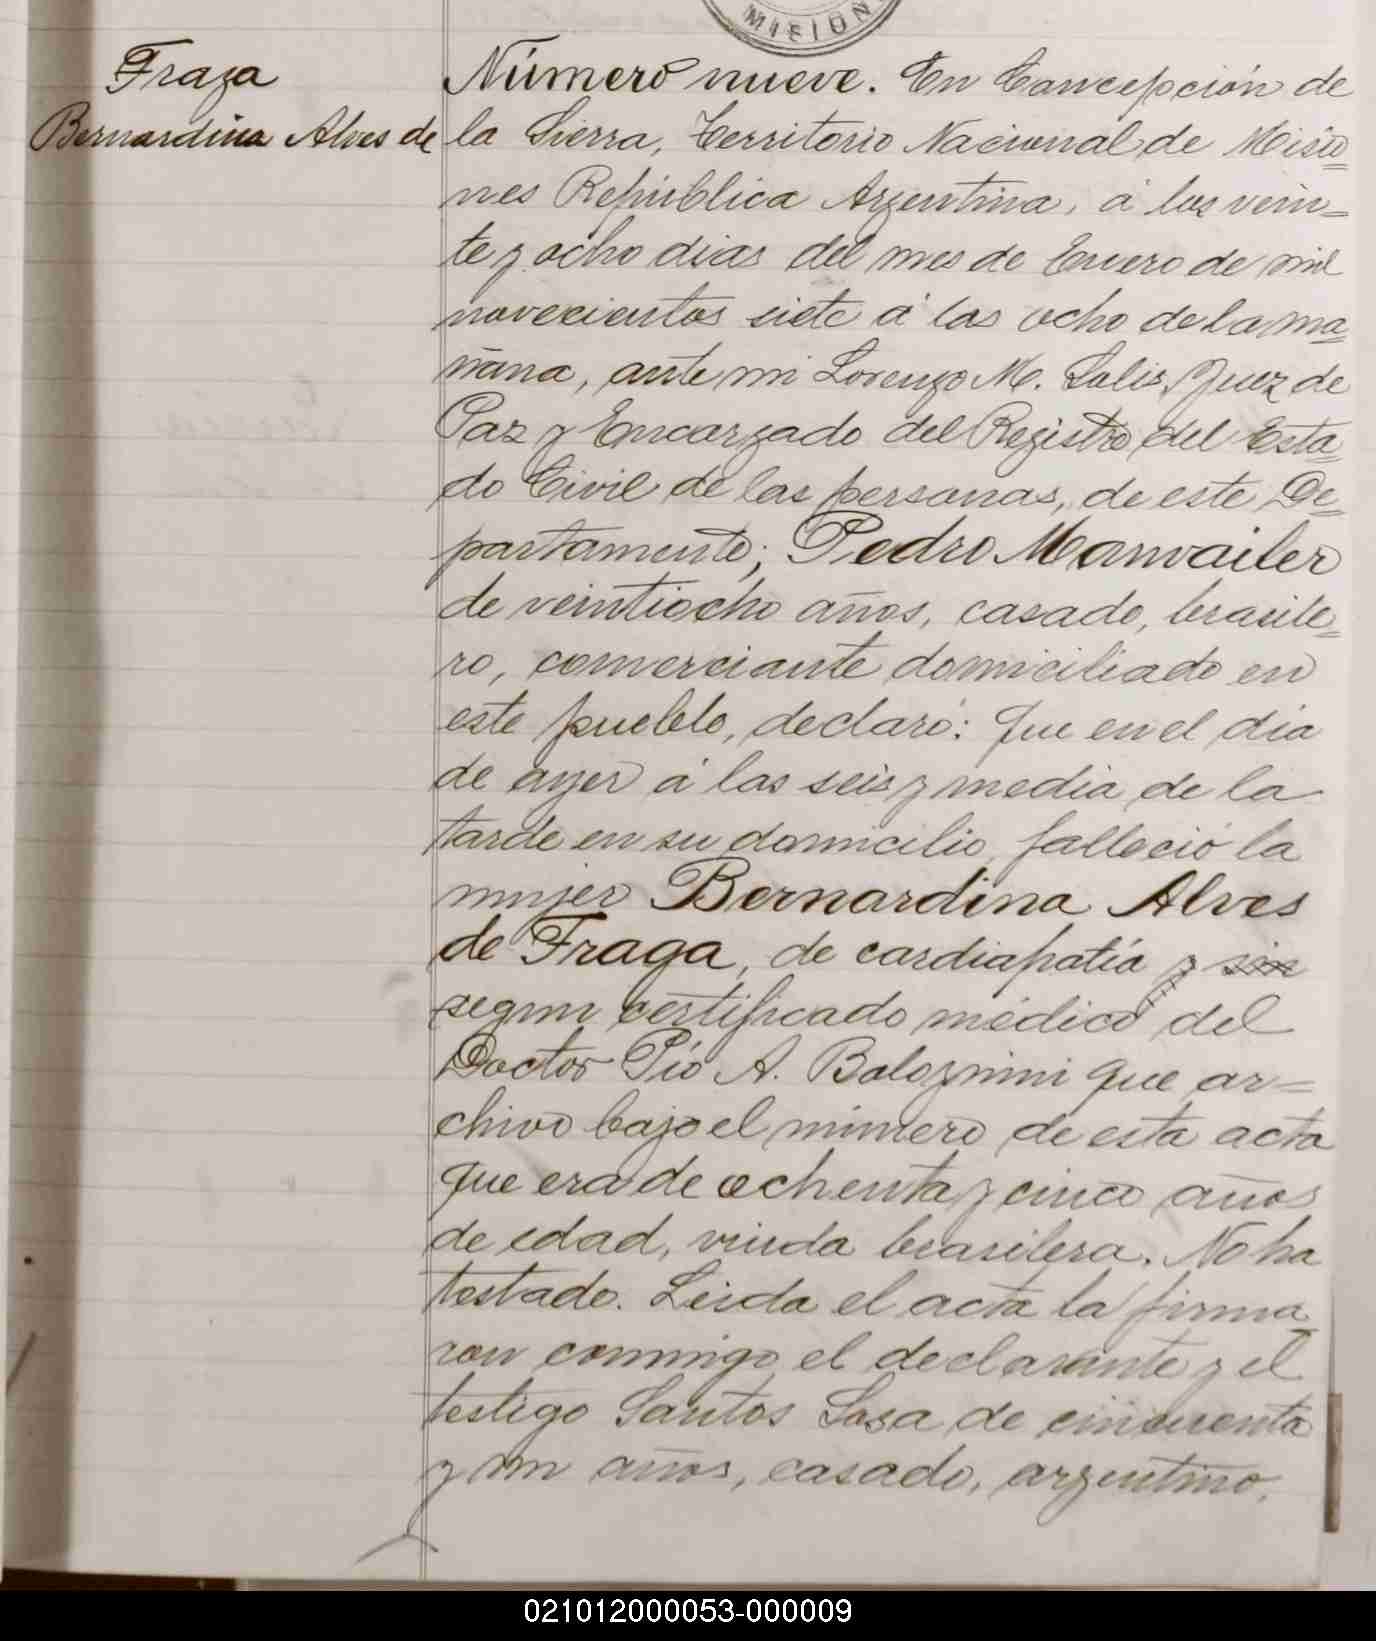 MISION
Fraga
Bernardina Alves de
Número nueve. En Concepción de
la Sierra, Territorio Nacional de Misio=
nes República Argentina, á los vein=
te y ocho dias del mes de Enero de mil
novecientos siete á las ocho de la ma=
ñana, ante mi Lorenzo M. Solis, Juez de
Paz y Encargado del Registro del Esta=
do Civil de las personas, de este De=
partamento; Pedro Manvailer
de veintiocho años, casado, brasile=
ro, comerciante domiciliado en
este pueblo, declaró: Que en el dia
de ayer á las seis y media de la
tarde en su domicilio, falleció la
mujer Bernardina Alves
de Fraga, de cardiapatía y sin
segun certificado médico del
Doctor Pío A. Bolognini que ar=
chivo bajo el número de esta acta
que era de ochenta y cinco años
de edad, viuda brasilera. No ha
testado. Leida el acta la firma
ron conmigo el declarante y el
testigo Santos Sosa de cincuenta
y un años, casado, argentino,
021012000053-000009